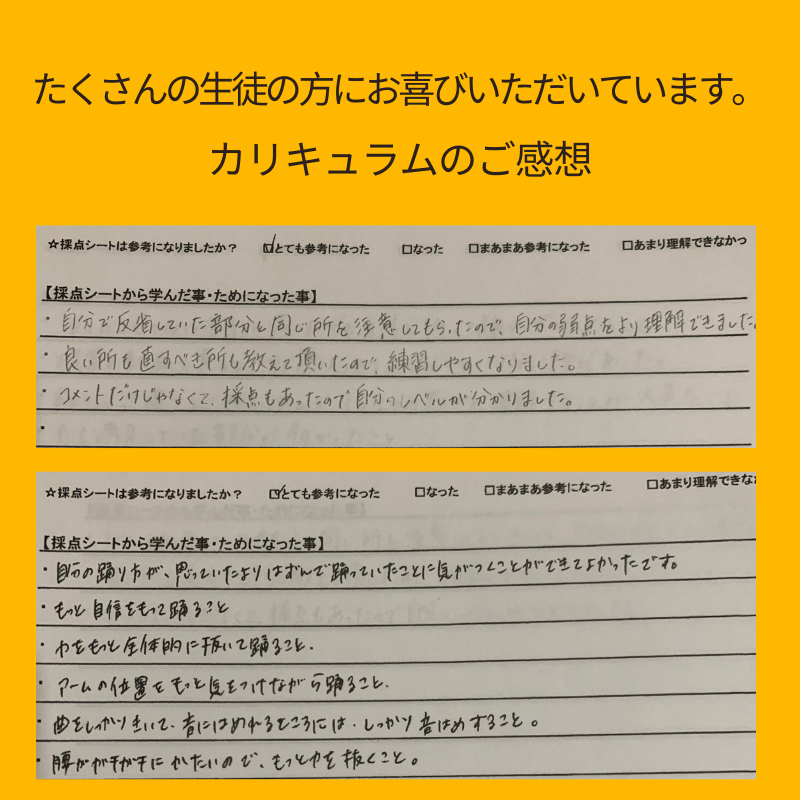 たくさんの生徒の方にお喜びいただいています。
カリキュラムのご感想
☆採点シートは参考になりましたか？ ☑とても参考になった □なった □まあまあ参考になった □あまり理解できなかっ
【採点シートから学んだ事・ためになった事】
・自分で反省していた部分と同じ所を注意してもらったので、自分の弱点をより理解できました。
・良い所も直すべき所も教えて頂いたので、練習しやすくなりました。
・コメントだけじゃなくて、採点もあったので自分のレベルが分かりました。
・
☆採点シートは参考になりましたか？ ☑とても参考になった □なった □まあまあ参考になった □あまり理解できな
【採点シートから学んだ事・ためになった事】
・自分の踊り方が、思っていたよりはずんで踊っていたことに気がつくことができてよかったです。
・もっと自信をもって踊ること
・力をもっと全体的に抜いて踊ること.
・アームの位置をもっと気をつけながら踊ること.
・曲をしっかりきいて、音にはめれるところには、しっかり音はめすること。
・腰がガチガチにかたいので、もっと力を抜くこと。